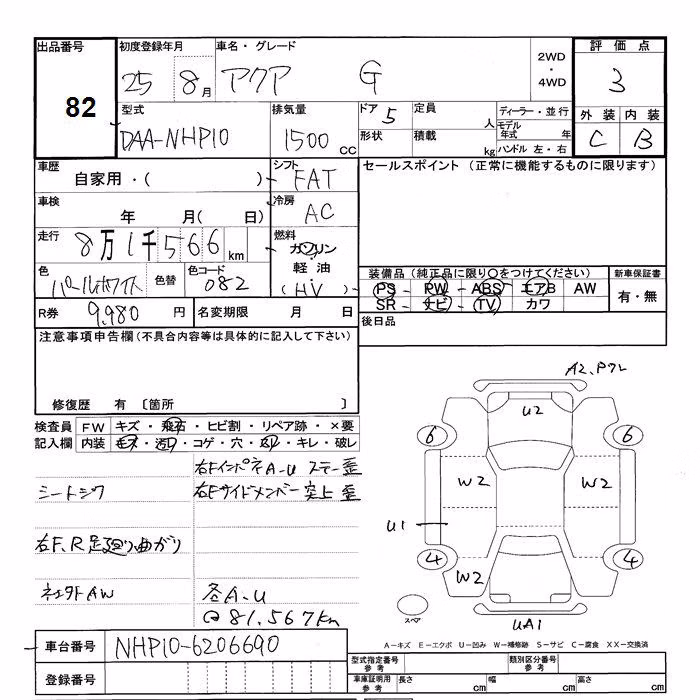 出品番号 初度登録年月 車名・グレード 評価点
82 25 8月 アクア G 2WD・4WD 3
型式 排気量 ドア 5 定員 人 ディーラー・並行 外装 内装
DAA-NHP10 1500cc 形状 積載 kg モデル年式 年 ハンドル 左・右 C B
車歴 シフト セールスポイント (正常に機能するものに限ります)
自家用・( ) FAT
車検 年 月( 日) 冷房 AC
走行 8万1千566km 燃料 ガソリン
軽油
(HV)
色 パールホワイト 色替 色コード 082
装備品(純正品に限り○をつけてください) 新車保証書
PS - PW - ABS エアB AW 有・無
SR ナビ TV カワ
R券 9,980円 名変期限 月 日 後日品
注意事項申告欄(不具合内容等は具体的に記入して下さい)
修復歴 有 〔箇所 〕
検査員記入欄 FW キズ・飛石・ヒビ割・リペア跡・×要
内装 キズ・汚れ・コゲ・穴・・キレ・破レ
右FインパネA-U ステー歪
シートシワ 右Fサイドメンバー突上歪
右F、R足廻り曲がり
社外AW 各A-U
@81,567km
A2、P
U2
6 6
W2 W2
U1
4 4
W2
スペア
UA1
A-キズ E-エクボ U-凹み W-補修跡 S-サビ C-腐食 XX-交換済
車台番号 NHP10-6206690
登録番号
型式指定番号 類別区分番号
車庫証明用参考 長さ cm 幅 cm 高さ cm